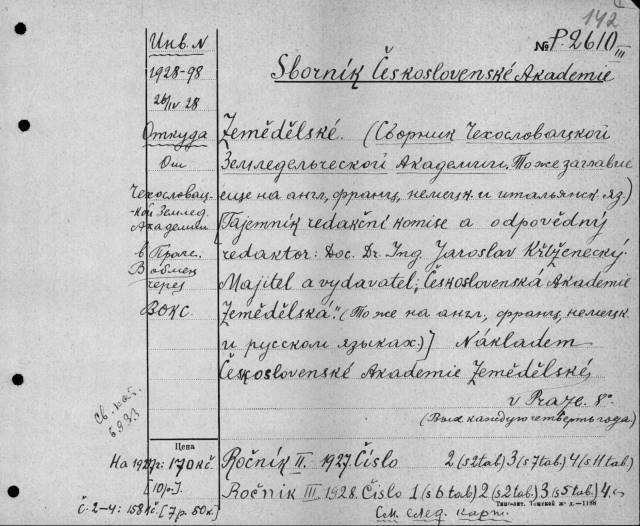 142
№ P.2610 III
Инв. N
1928-98
26/IV 28
Откуда
От
Чехословац-
кой Землед.
Академии
в Праге.
В обмен
через
ВОКС.
Св. кат.
6933
Цена
На 1927г: 170 кč.
[10р.].
Č. 2-4: 158 kč. [7р. 50к.]
Sborník Československé Akademie
Zemědělské. (Сборник Чехословацкой
Земледельческой Академии. То же заглавие
еще на англ, франц, немецк. и итальянск. яз.)
[Tajemník redakční komise a odpovědný
redaktor: Doc. Dr. Ing Jaroslav Kříženecký.
Majitel a vydavatel: Československá Akademie
Zemědělská." (То же на англ, франц, немецк.
и русском языках.)] Nákladem
Československé Akademie Zemědělské,
v Praze. 8°
(Вых. каждую четверть года)
Ročník II. 1927. Číslo 2 (s 2 tab) 3 (s 7 tab) 4 (s 11 tab)
Ročník III. 1928. Číslo 1 (s 6 tab) 2 (s 2 tab) 3 (s 5 tab) 4.
Типо-лит. Томской ж. д.—1198
См. след. карт.